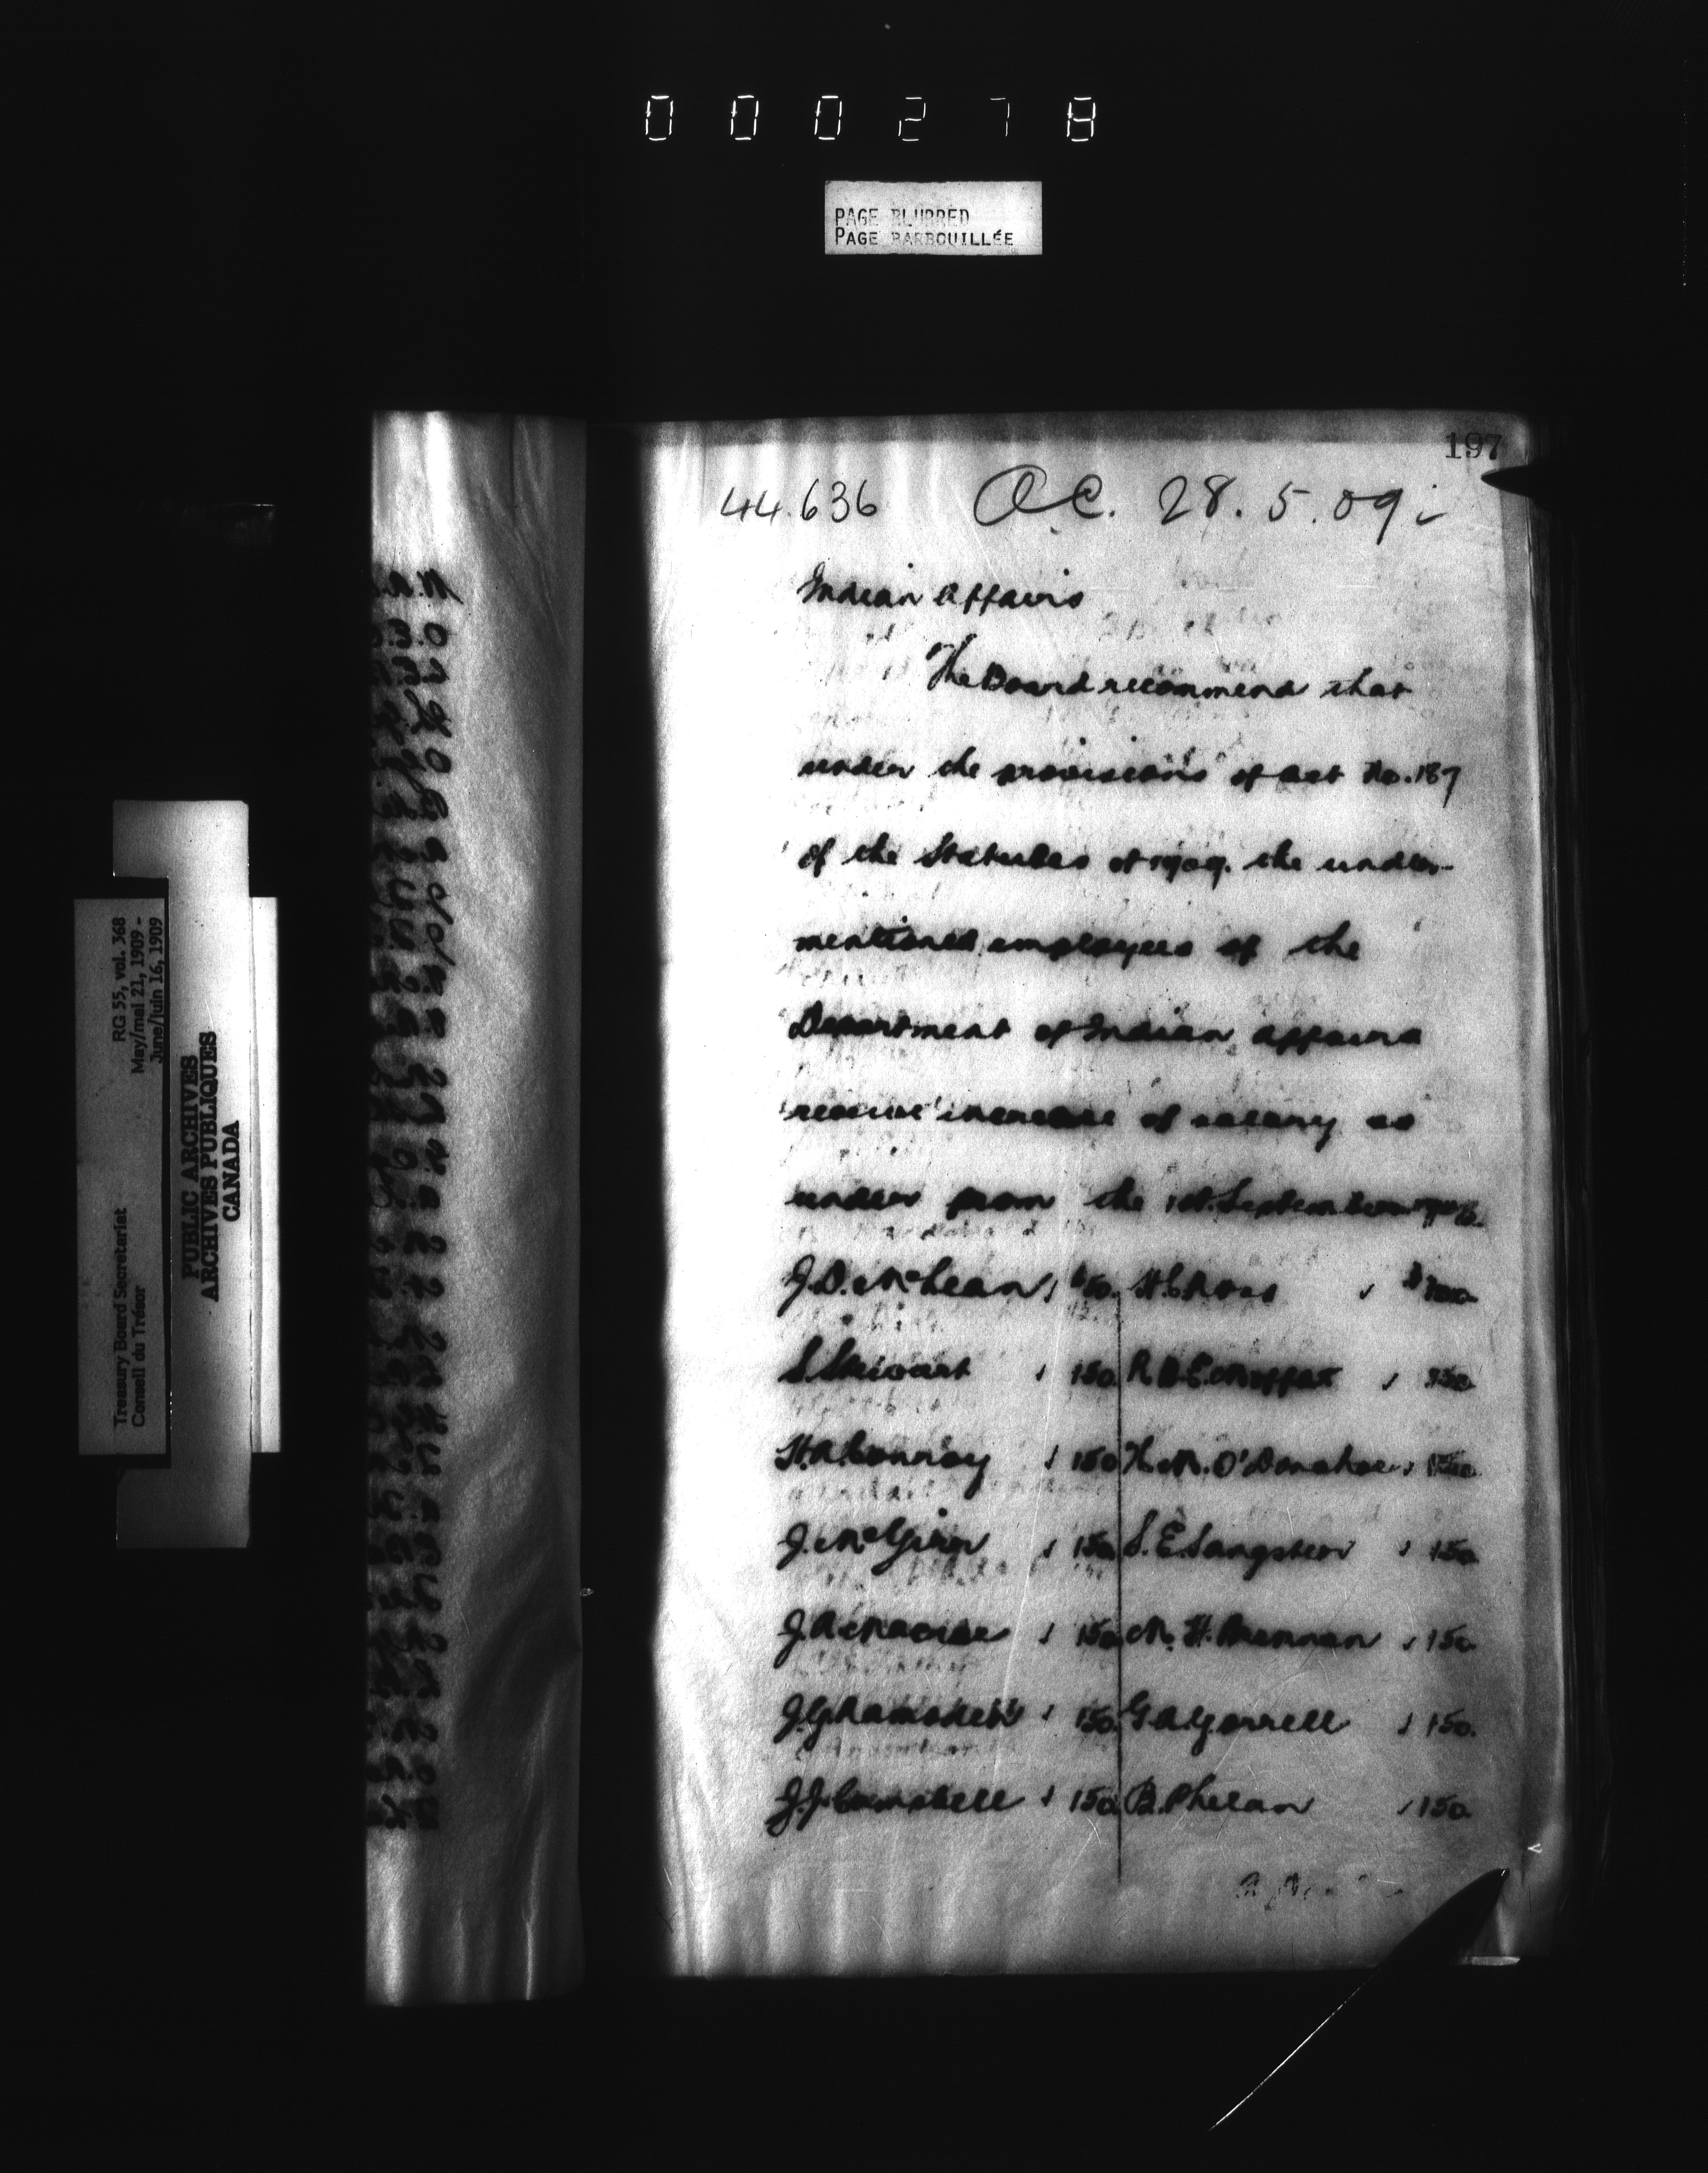 000278
PAGE BLURRED
PAGE BARBOUILLÉE
197
44.636 O.C. 28.5.09
Indian Affairs
The Board recommend that
under the provisions of act No. 187
of the Statutes of 1909. the under-
mentioned employees of the
Department of Indian Affairs
receive increase of salary as
under from the 1st. September
J.D. McLean, $150. H.C. Ross
S. Stewart 150 R.B.E. Moffat 150
H.A. Conroy 150 H.M. O'Donahoe 150
J. McGirr 150 S.E. Sangster 150
J.A. Macrae 150 M.H. Brennan 150
J.G. Ramsden 150. G.A. Gorrell 150.
J.J. Campbell 150 B. Phelan 150
Treasury Board Secretariat RG 55, vol. 368
Conseil du Trésor May/mai 21, 1909 -
June/juin 16, 1909
PUBLIC ARCHIVES
ARCHIVES PUBLIQUES
CANADA